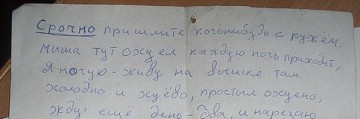 Срочно пришлите когонибудь с ружем.
Миша тут охуел каждую ночь приходит,
Я ночую-живу на вышке там
холодно и хуёво, простыл охуено,
жду! ещё день-два, и нарезаю